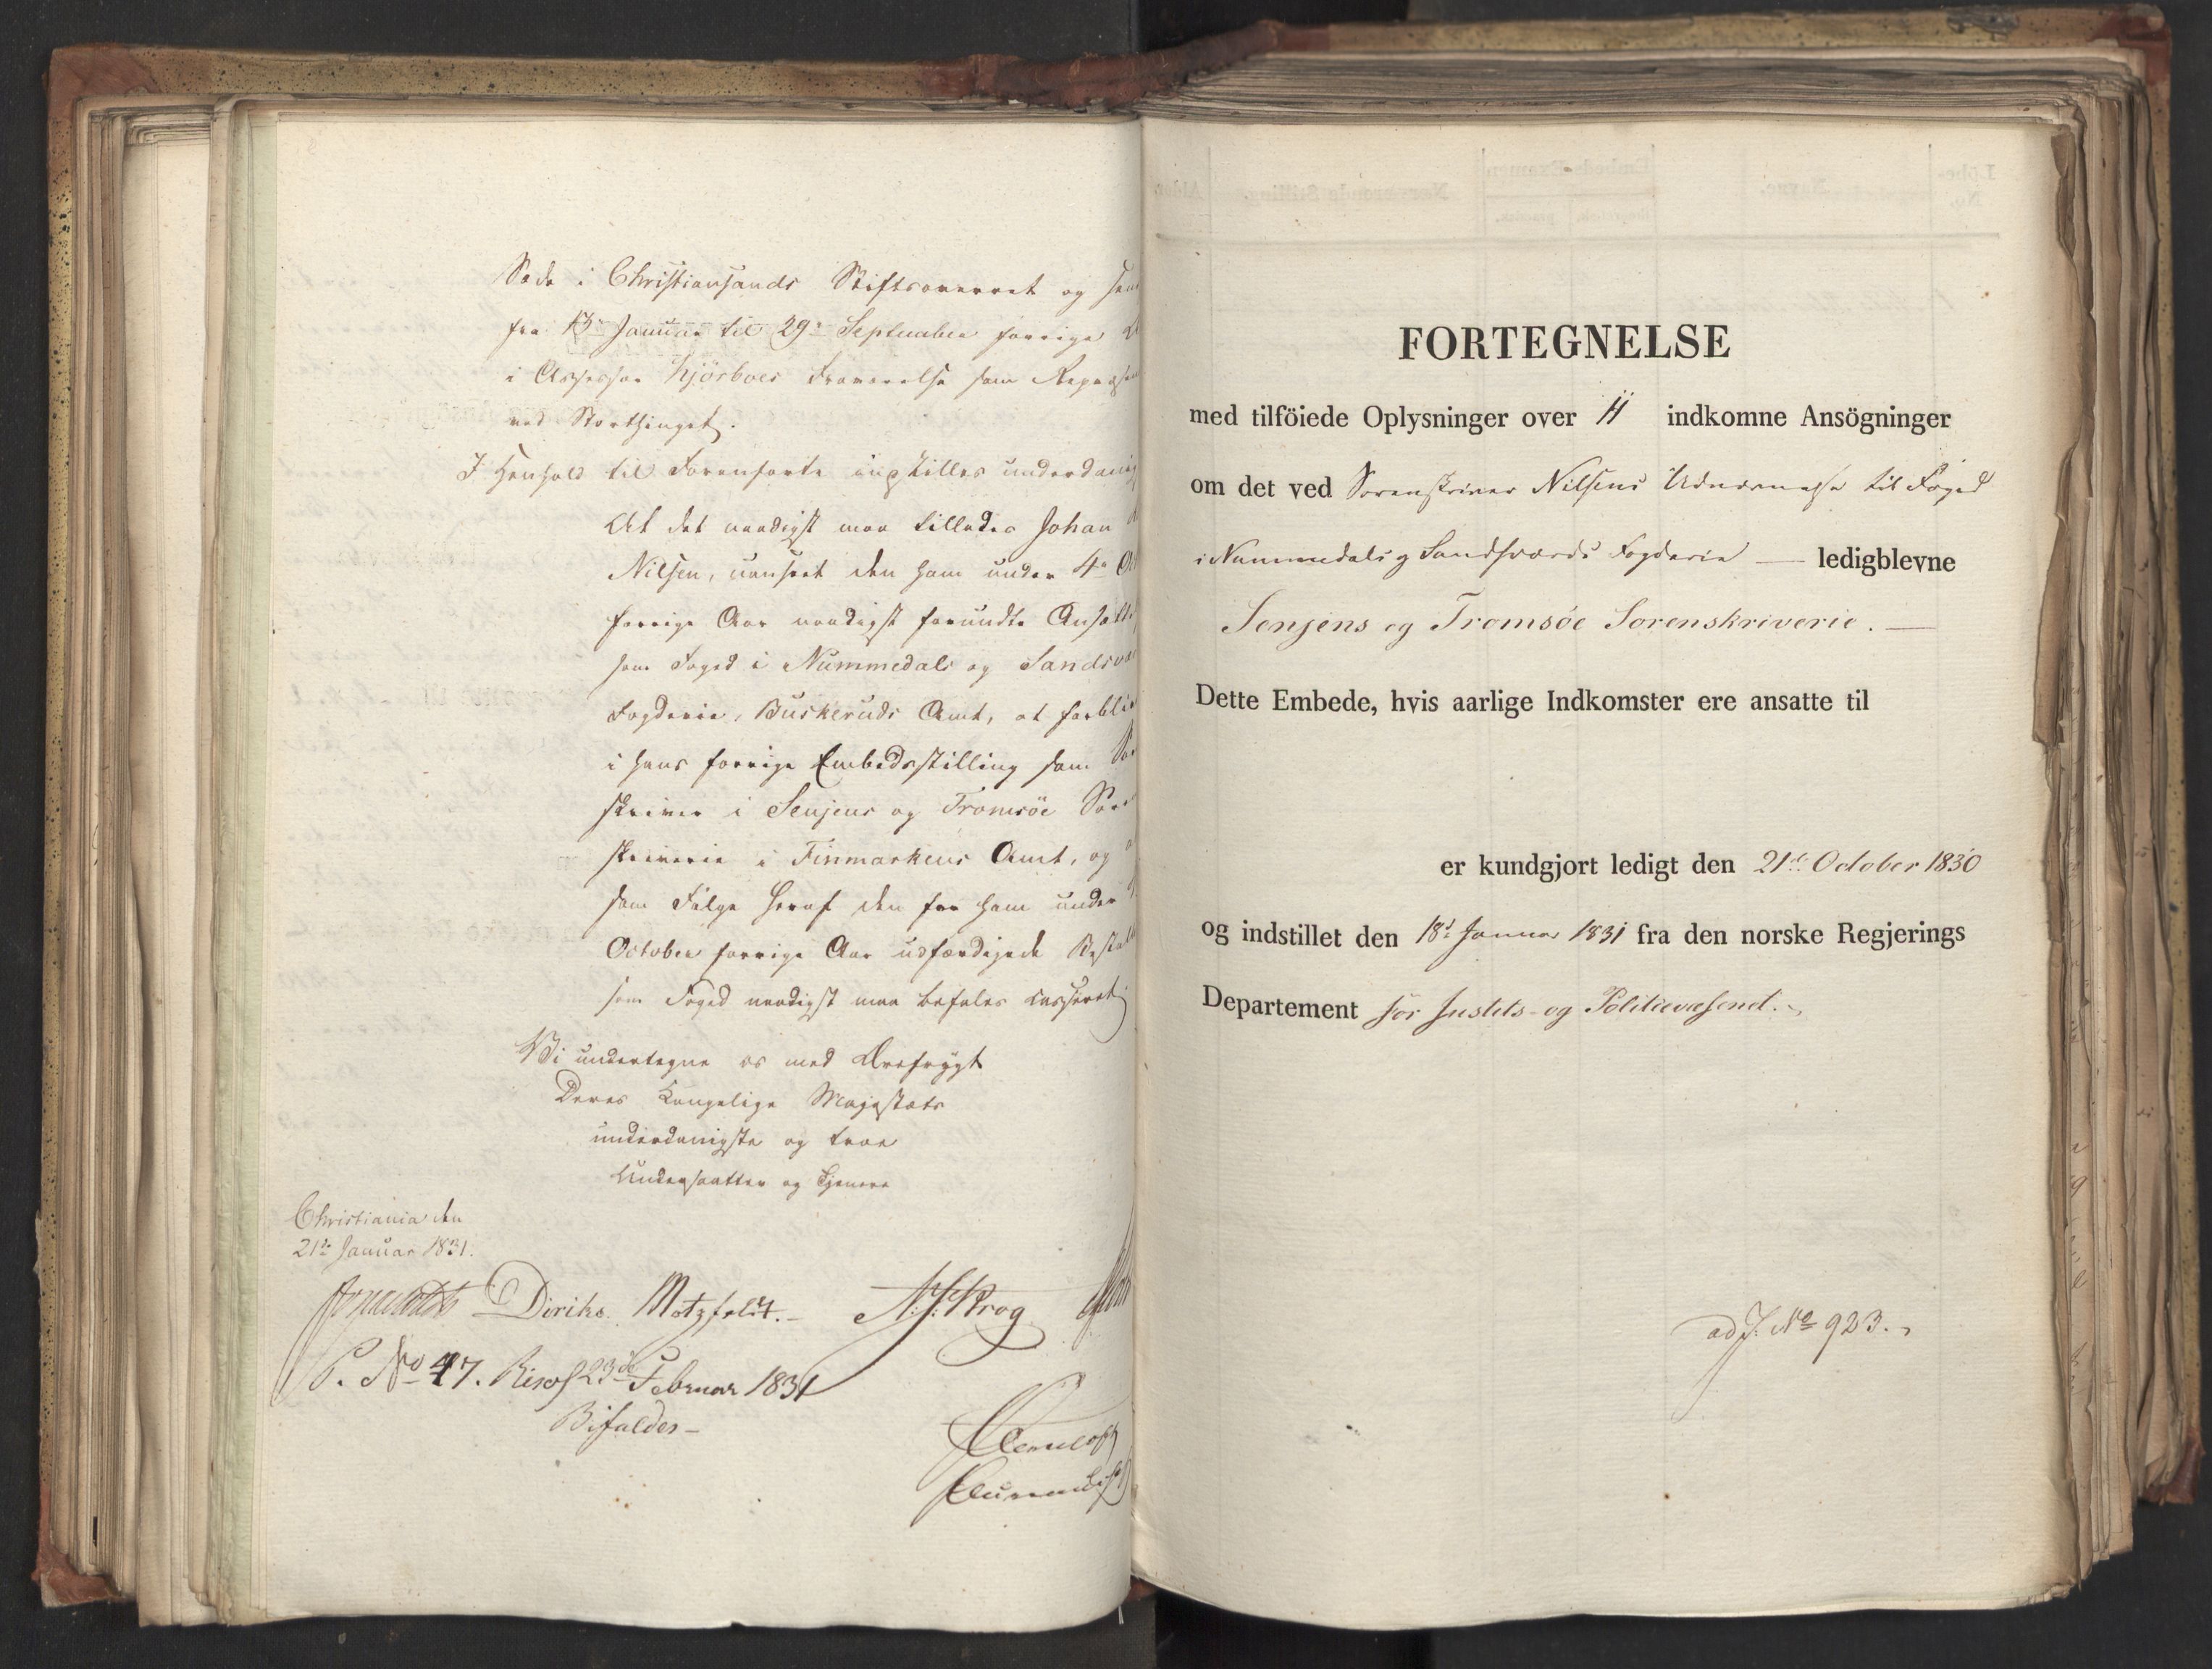 Sæde i Christiansands Stiftsoverret og
fra 13de Januar til 29de September forrige
i Assessor Kjörboes Fraværelse som
ved Storthinget.
I Henhold til Foranførte indstilles
At det naadigst maa tillades Johan
Nilsen, uanseet den ham under 4de
forrige Aar naadigst forundte
som Foged i Nummedals og
Fogderie, Buskeruds Amt, at
i hans forrige Embedsstilling som
skriver i Senjens og Tromsöe
skriverie i Finmarkens Amt, og
som Følge heraf den for ham under
October forrige Aar udfærdigede
som Foged naadigst maa befales casseret.
Vi undertegne os med Ærefrygt
Deres Kongelige Majestæts
underdanigste og troe
Undersaatter og Tjenere
Christiania den
21de Januar 1831.
Diriks Motzfeldt. Krog
P. No 47. 23de Februar 1831
Bifaldes
FORTEGNELSE
med tilföiede Oplysninger over 11 indkomne Ansögninger
om det ved Sorenskriver Nilsens Udnævnelse til Foged
i Nummedals og Sandsværds Fogderie — ledigblevne
Senjens og Tromsöe Sorenskriverie. —
Dette Embede, hvis aarlige Indkomster ere ansatte til
er kundgjort ledigt den 21de October 1830
og indstillet den 18de Januar 1831 fra den norske Regjerings
Departement for Justits- og Politievæsenet.
ad J. No 923.